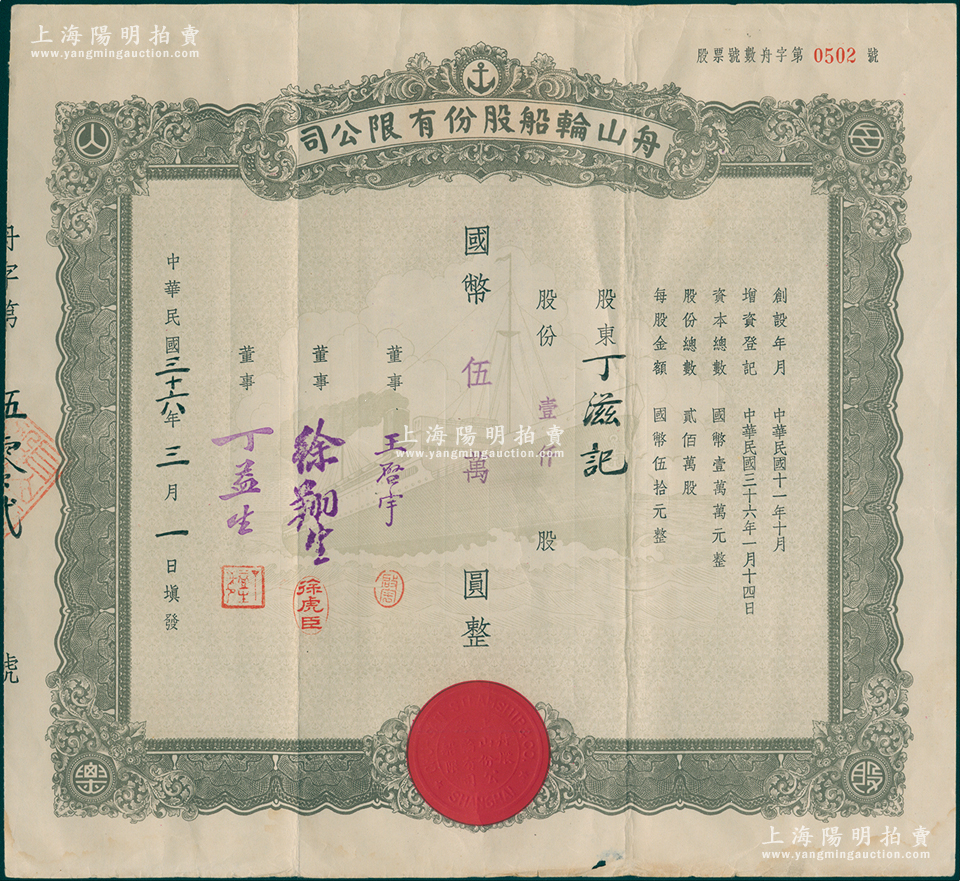 上海陽明拍賣
www.yangmingauction.com
股票號數舟字第 0502 號
舟山輪船股份有限公司
創設年月 中華民國十一年十月
增資登記 中華民國三十六年一月十四日
資本總數 國幣壹萬萬元整
股份總數 貳佰萬股
每股金額 國幣伍拾元整
股東 丁滋記
股份 壹 股
國幣 伍萬 圓整
董事 王啓宇
董事 徐翔生
徐虎臣
董事 丁益生
中華民國三十六年三月一日填發
舟字第 伍零 號
上海陽明拍賣
www.yangmingauction.com
上海陽明拍賣
www.yangmingauction.com
股